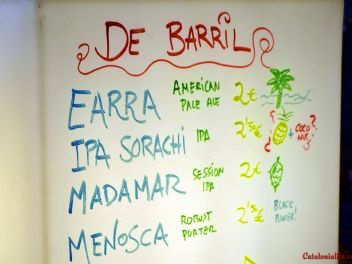 DE BARRIL
EARRA AMERICAN PALE ALE 2€
IPA SORACHI IPA 2'50€ ¿ + COCONUT?
MADAMAR SESSION IPA 2€
MENOSCA ROBUST PORTER 2'50€ BLACK POWER!